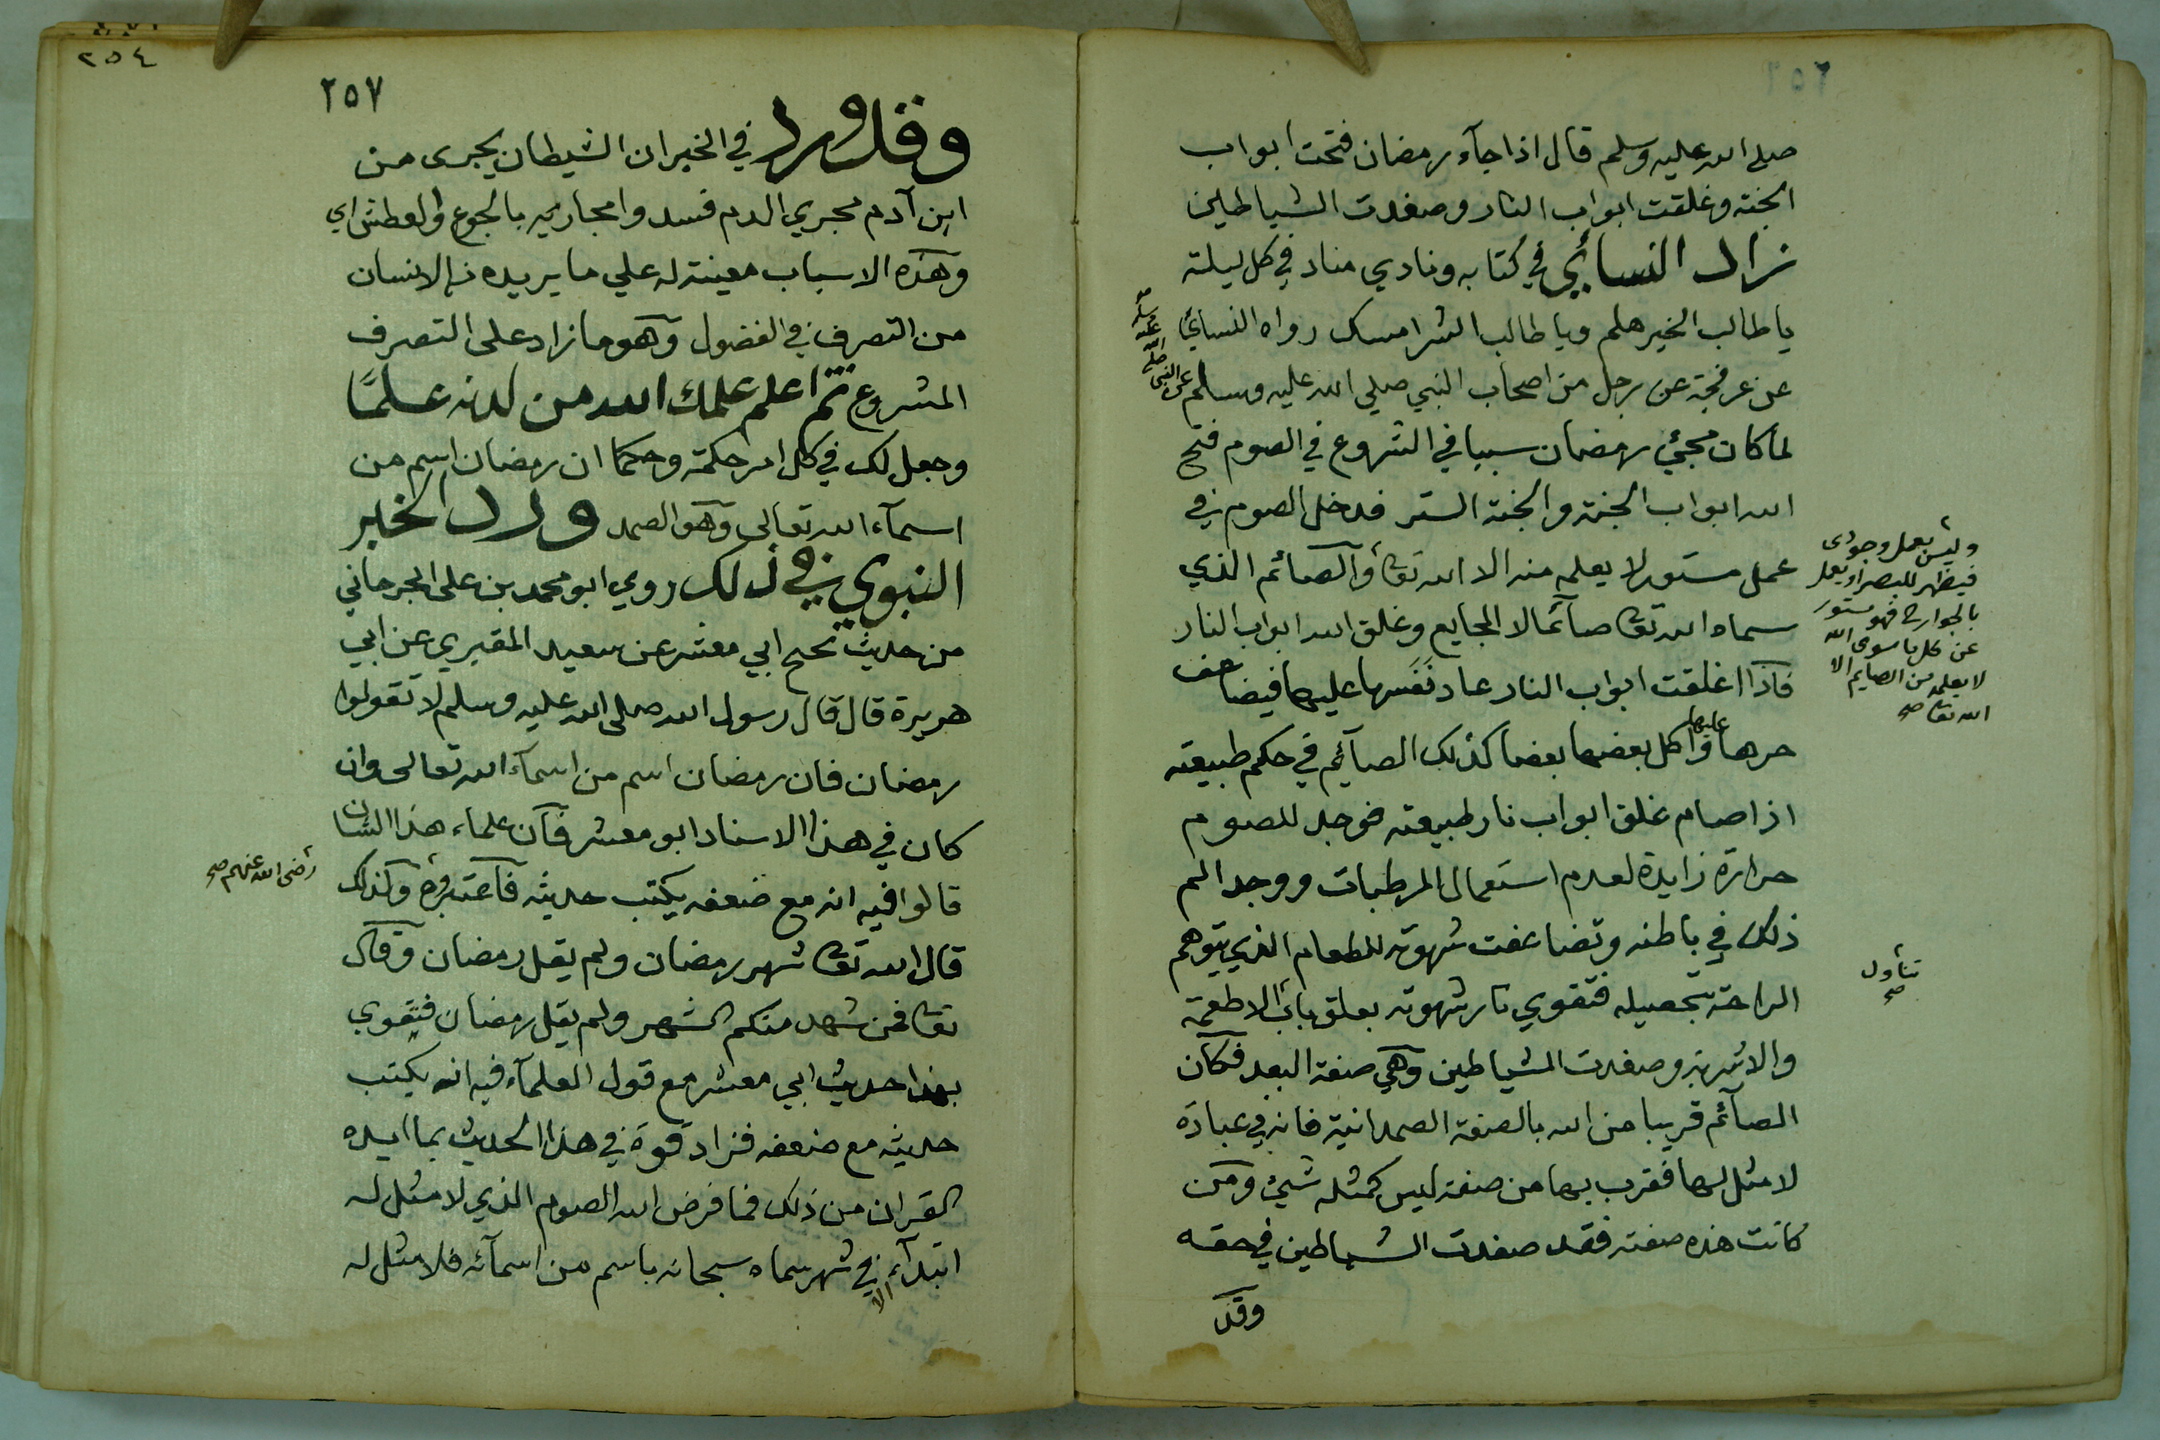 ٢٥٦
صلى الله عليه وسلم قال اذا جآء رمضان فتحت ابواب
الجنة وغلقت ابواب النار وصفدت الشياطين
زاد النسائي في كتابه ونادي مناد في كل ليلة
يا طالب الخير هلم ويا طالب الشر امسك رواه النسائي
عن عرفجة عن رجل من اصحاب النبي صلي الله عليه وسلم
عن النبي صلى الله عليه وسلم
لما كان مجئ رمضان سببا في الشروع في الصوم فتح
الله ابواب الجنة والجنة الستر فدخل الصوم في
عمل مستور لا يعلمه منه الا الله تعا والصائم الذي
سماه الله تعا صآئما لا الجايع وغلق الله ابواب النار
فاذا اغلقت ابواب النار عاد نَفَسها عليها فيضاعف
حرها عليها واكل بعضها بعضا كذلك الصآئم في حكم طبيعته
اذا صام غلق ابواب نار طبيعته فوجد للصوم
حرارة زايدة لعدم استعمال المرطبات ووجد الم
ذلك في باطنه وتضاعفت شهوته للطعام الذي يتوهم
الراحة بتحصيله فتقوي نار شهوته بغلق باب الاطعمة
والاشربة وصفدت الشياطين وهي صفة البعد فكان
الصآئم قريبا من الله بالصفة الصمدانية فانه في عبادة
لا مثل لها فقرب بها من صفة ليس كمثله شئ ومن
كانت هذه صفته فقد صفدت الشياطين في حقه
وقد
وليس بعمل وجودى
فيظهر للبصر او يعمل
بالجوارح فهو مستور
عن كل ما سوى الله
لا يعلمه من الصايم الا
الله تعا صح
تناول
صح
٢٥٤
٢٥٧
وقد ورد في الخبر ان الشيطان يجرى من
ابن آدم مجري الدم فسدوا مجاريه بالجوع والعطش اي
وهذه الاسباب معينة له علي ما يريده من الانسان
من التصرف في الفضول وهو ما زاد على التصرف
المشروع ثم اعلم علمك الله من لدنه علمًا
وجعل لك في كل امر حكمة وحكما ان رمضان اسم من
اسمآء الله تعالى وهو الصمد ورد الخبر
النبوي في ذلك روي ابو محمد بن على الجرجاني
من حديث نجيح ابي معشر عن سعيد المقبري عن ابي
هريرة قال قال رسول الله صلى الله عليه وسلم لا تقولوا
رمضان فان رمضان اسم من اسمآء الله تعالى وان
كان في هذا الاسناد ابو معشر فان علماء هذا الشان
قالوا فيه انه مع ضعفه يكتب حديثه فاعتبروه وكذلك
رضى الله عنهم صح
قال الله تعا شهر رمضان ولم يقل رمضان وقال
تعا فمن شهد منكم الشهر ولم يقل رمضان فتقوي
بهذا حديث ابي معشر مع قول العلمآء فيه انه يكتب
حديثه مع ضعفه فزاد قوة في هذا الحديث بما ايده
القران من ذلك فما فرض الله الصوم الذي لا مثل له
ابتدآء الا في شهر سماه سبحانه باسم من اسمآئه فلا مثل له